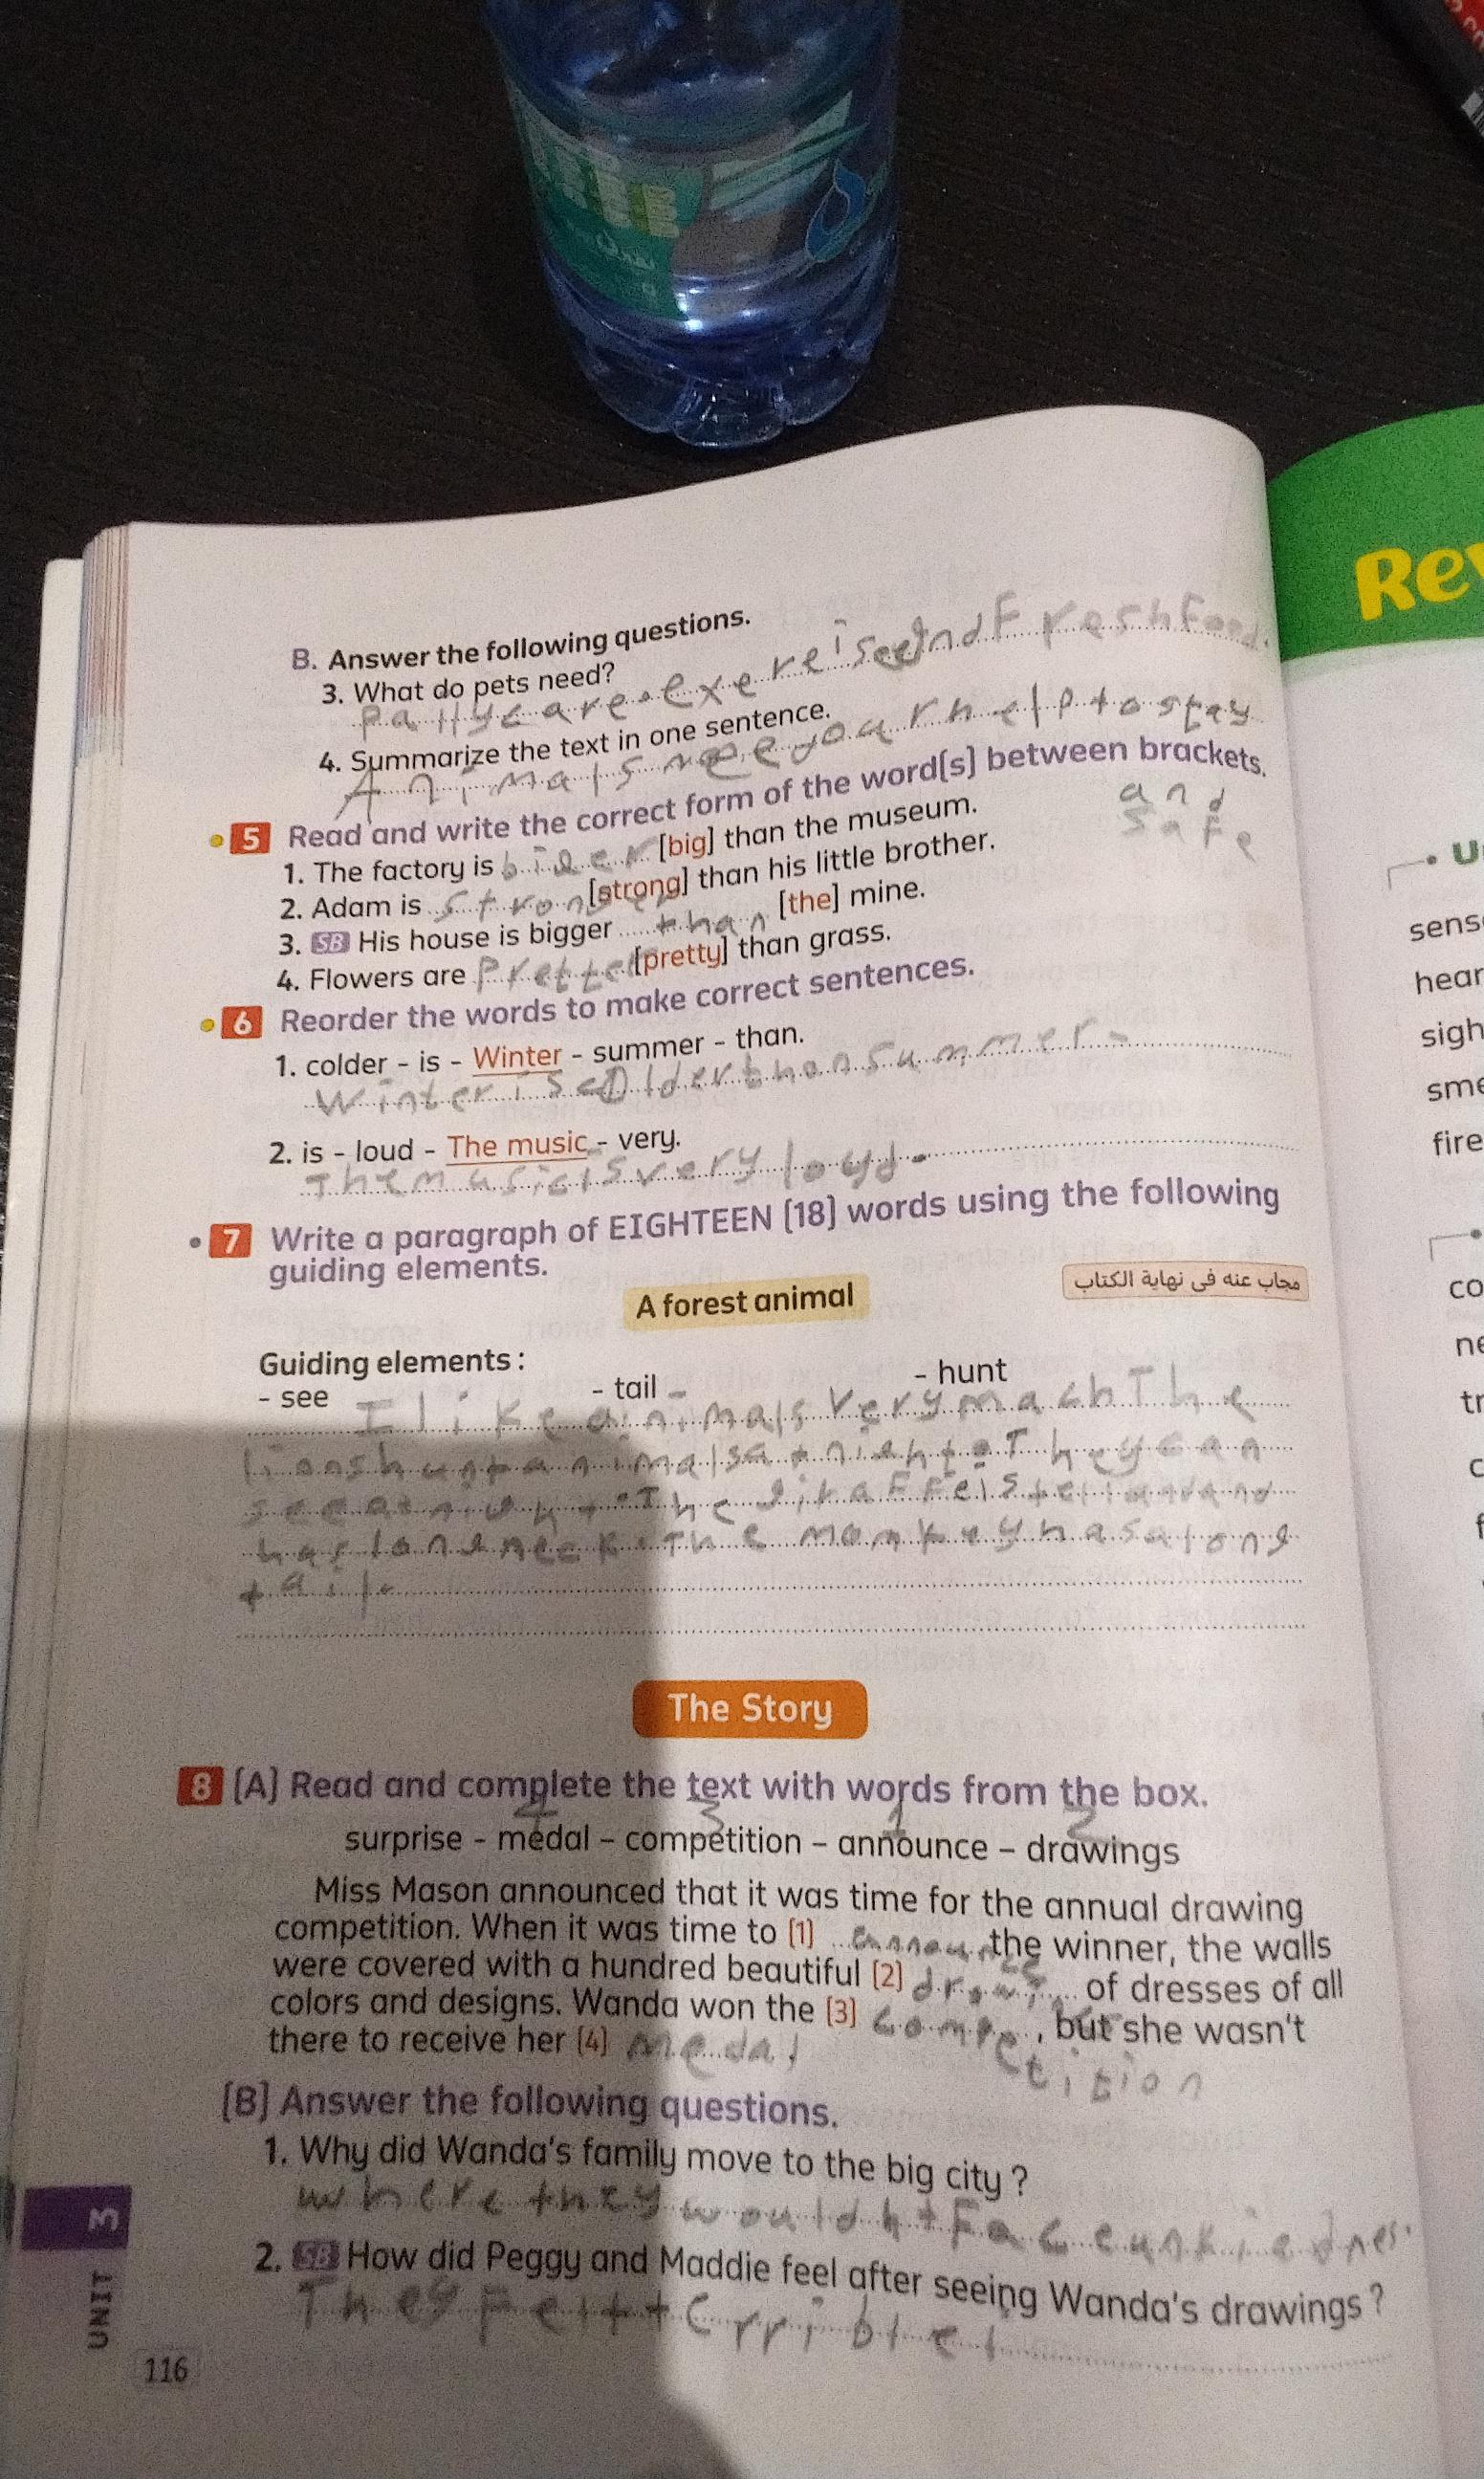 B. Answer the following questions.
3. What do pets need?
care. exereise and Fresh Food.
4. Summarize the text in one sentence.
Animals need our help to stay
and
safe
5 Read and write the correct form of the word(s) between brackets.
1. The factory is bider [big] than the museum.
2. Adam is stronger [strong] than his little brother.
3. SB His house is bigger than [the] mine.
4. Flowers are Pretter [pretty] than grass.
6 Reorder the words to make correct sentences.
1. colder - is - Winter - summer - than.
Winter is colder than summer.
2. is - loud - The music - very.
The music is very loud.
7 Write a paragraph of EIGHTEEN (18) words using the following
guiding elements.
مجاب عنه فى نهاية الكتاب
A forest animal
Guiding elements :
- see - tail - hunt
I like animals very mach The
lions hunt animals at night. They can
see at night. The giraffe is and
has long neck. The monkey has a long
tail.
The Story
8 (A) Read and complete the text with words from the box.
4 3 1 2
surprise - medal - competition - announce - drawings
Miss Mason announced that it was time for the annual drawing
competition. When it was time to (1) announce the winner, the walls
were covered with a hundred beautiful (2) of dresses of all
colors and designs. Wanda won the (3) compe, but she wasn't
tition
there to receive her (4) medal
(B) Answer the following questions.
1. Why did Wanda's family move to the big city ?
where they would face
2. SB How did Peggy and Maddie feel after seeing Wanda's drawings ?
They Felt terrible
UNIT 3
116
Rev
sens
hear
sigh
sme
fire
co
ne
tr
c